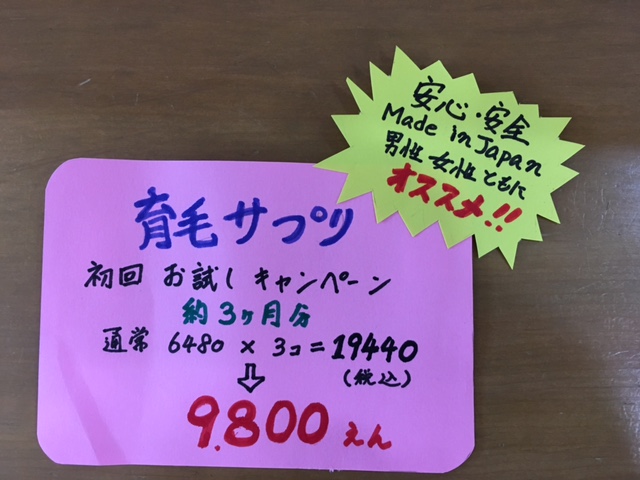 安心・安全
Made in Japan
男性 女性 ともに
オススメ!!
育毛サプリ
初回 お試し キャンペーン
約3ヶ月分
通常 6480 × 3コ = 19440
(税込)
⇩
9.800 えん